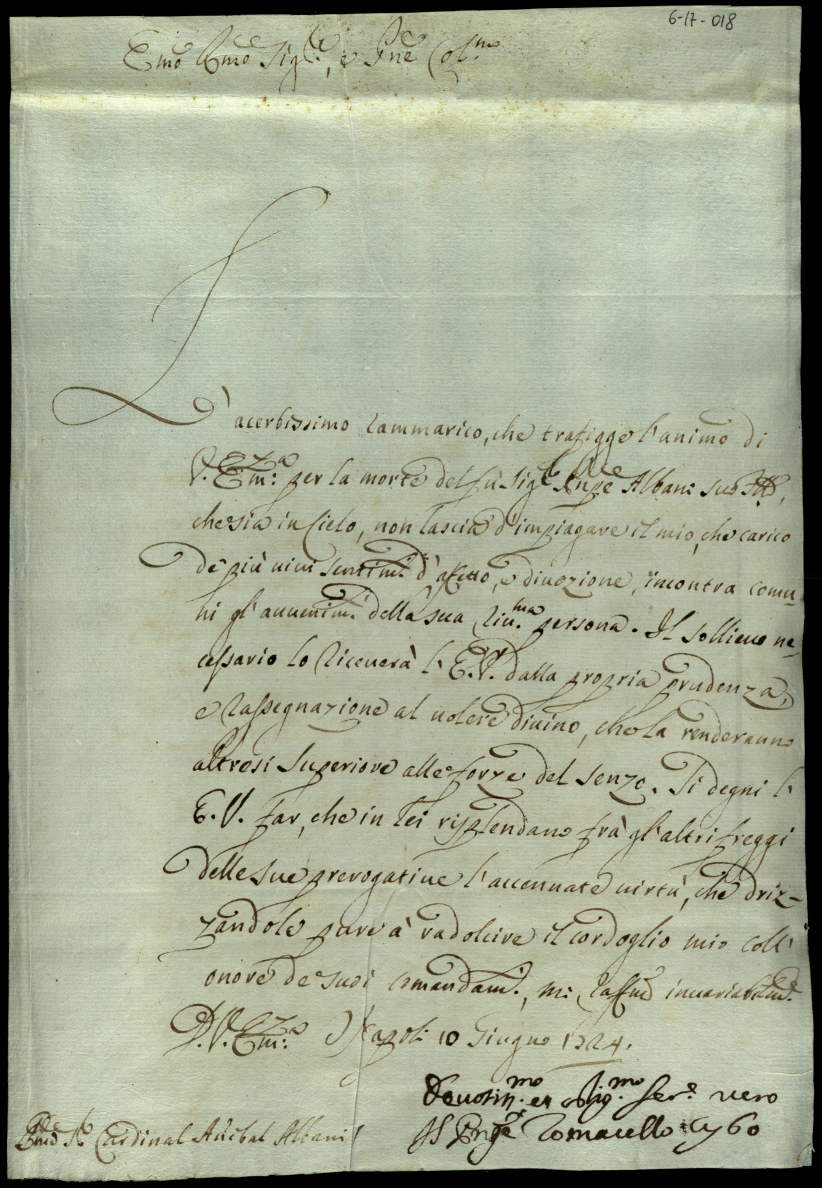 6-17-018
Emo Rmo Sigre, e Pne Colmo
L'acerbissimo rammarico, che trafigge l'animo di
V. Emza per la morte del fù Sigre Pnpe Albani suo Pre,
che sia in Cielo, non lascia d'impiagare il mio, che carico
de più vivi sentimti d'affetto, e divozione, incontra comu-
ni gl'avvenimti della sua rivma persona. Il sollievo ne-
cessario lo riceverà l'E.V. dalla propria prudenza,
e rassegnazione al volere divino, che la renderanno
altresì superiore alle forze del senzo. Si degni l'
E.V. far, che in lei risplendano frà gl'altri freggi
delle sue prerogative l'accennate virtù, che driz-
zandole pure à radolcire il cordoglio mio coll'
onore de suoi comandamti, mi raffmo invariabilmte
D.V. Emza Napoli 10 Giugno 1724.
Devotismo et obligmo serre vero
Il Pnpe Tomacello Cybo
Cardinal Anibal Albani